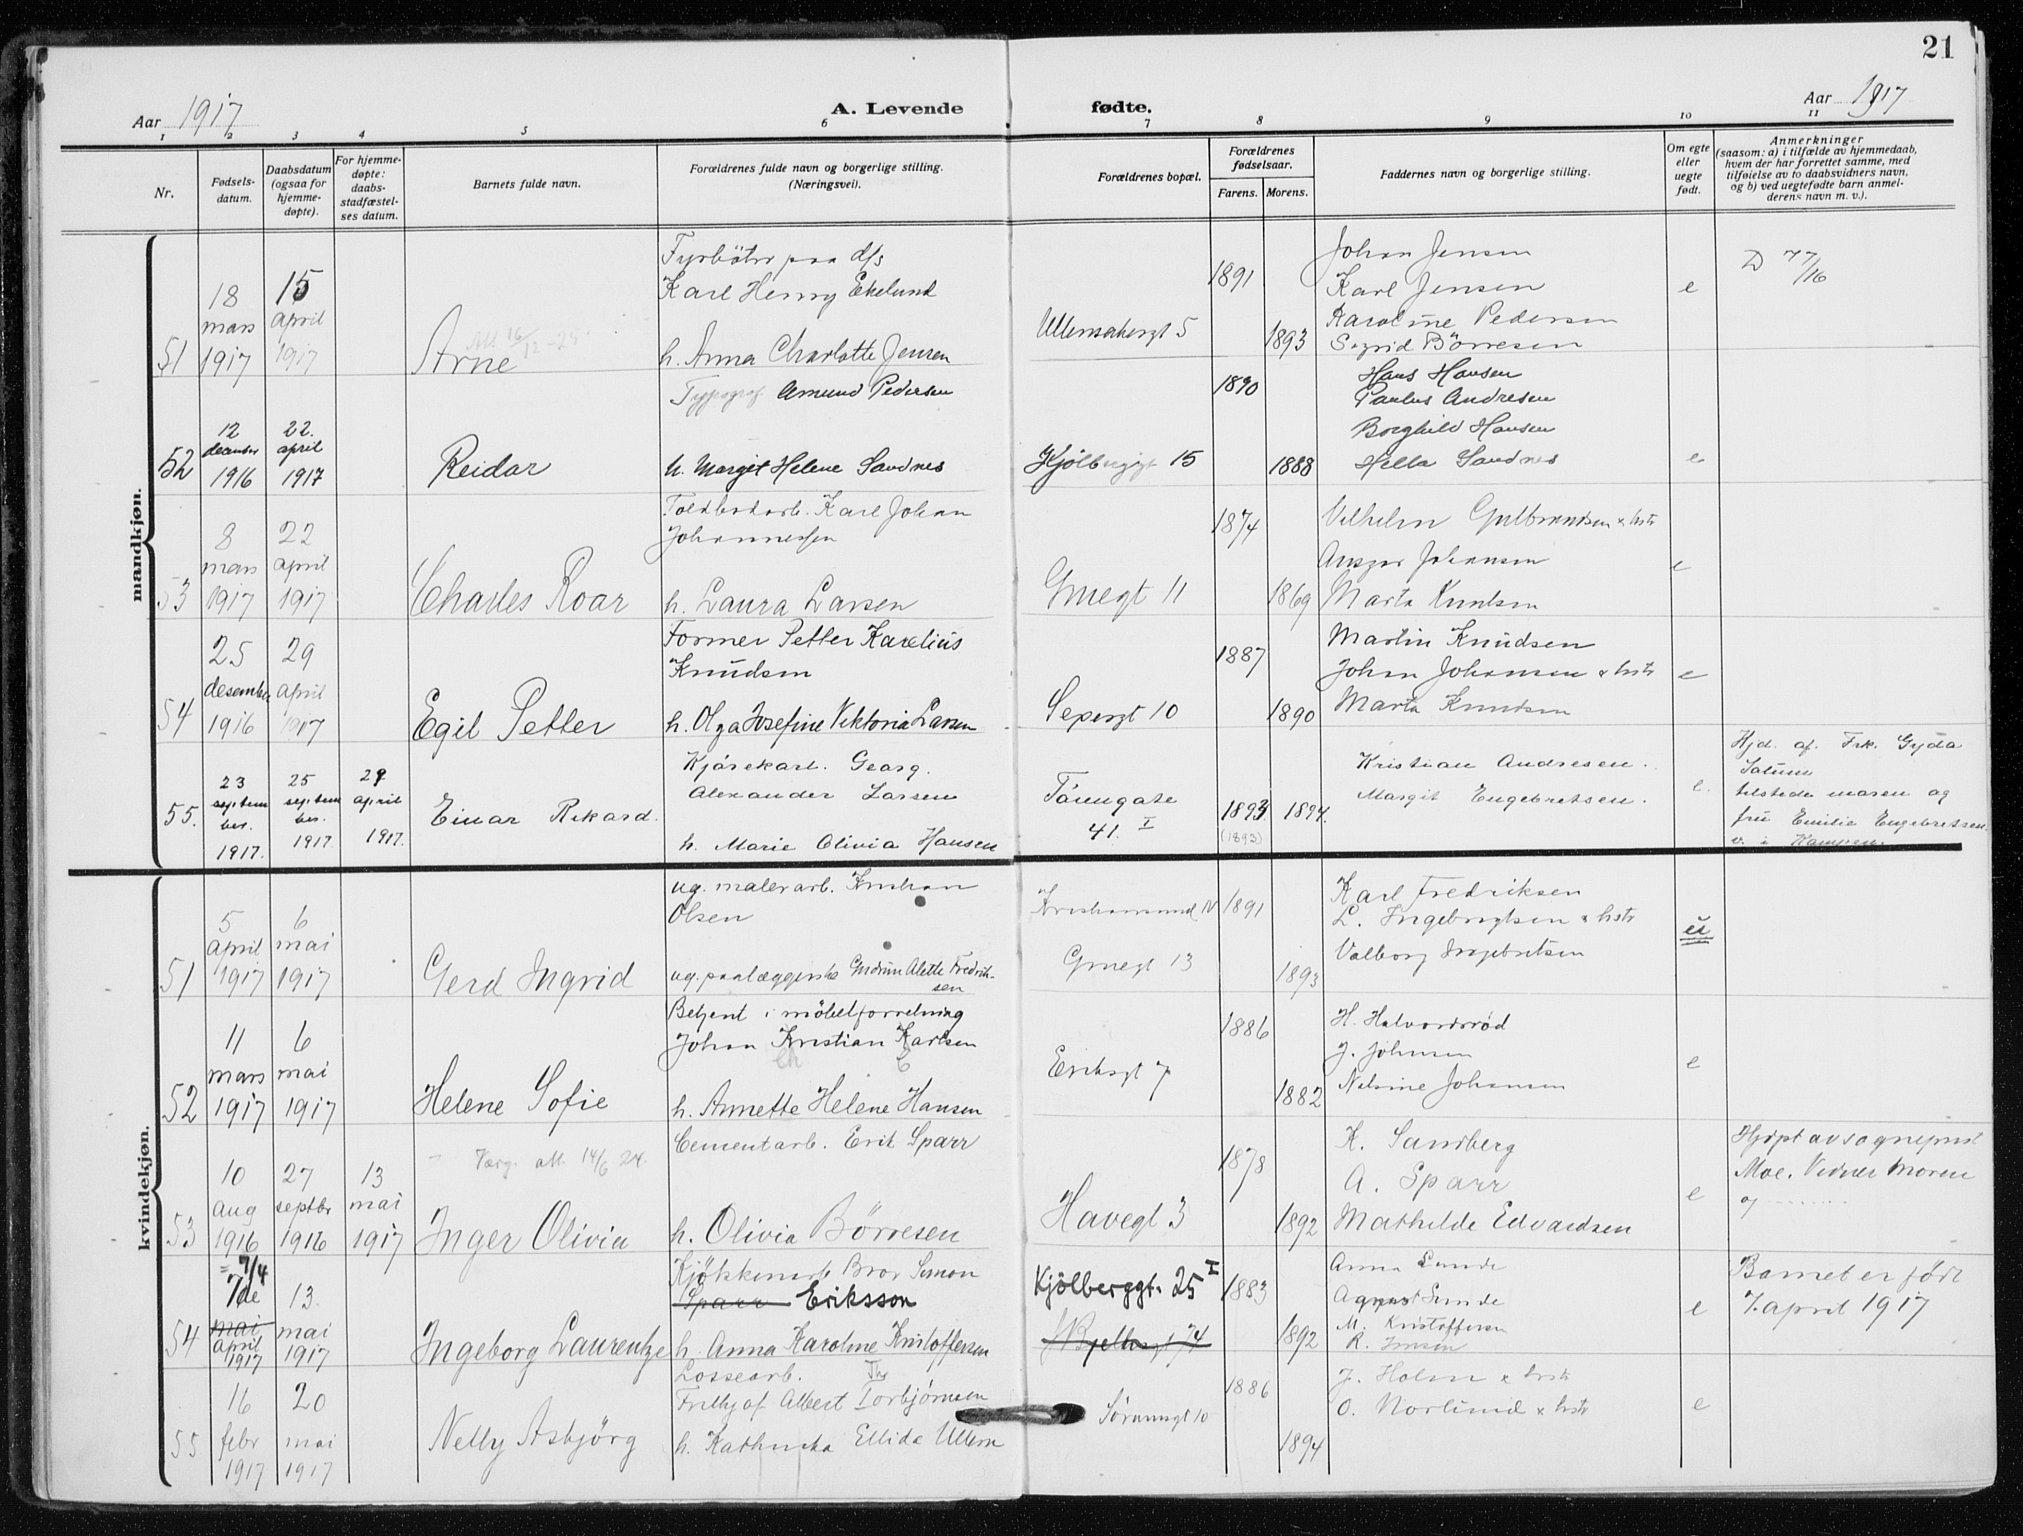 21
Aar 1917
A. Levende
fødte.
Aar 1917
1 2 3 4 5 6 7 8 9 10 11
Nr.
Fødsels-
datum.
Daabsdatum
(ogsaa for
hjemme-
døpte).
For hjemme-
døpte:
daabs-
stadfæstel-
ses datum.
Barnets fulde navn.
Forældrenes fulde navn og borgerlige stilling.
(Næringsvei).
Forældrenes bopæl.
Forældrenes
fødselsaar.
Farens. Morens.
Faddernes navn og borgerlige stilling.
Om egte
eller
uegte
født.
Anmerkninger
(saasom: a) i tilfælde av hjemmedaab,
hvem der har forrettet samme, med
tilføielse av to daabsvidners navn,
og b) ved uegtefødte barn anmel-
derens navn m. v.).
mandkjøn.
51
18
mars
1917
15
april
1917
Att. 16/12-25
Arne
Fyrbøter paa d/s
Karl Henry Ekelund
h. Anna Charlotte Jensen
Ullensakergt 5
1891
1893
Johan Jensen
Karl Jensen
Karoline Pedersen
Sigrid Börresen
e
D 77/16
52
12
december
1916
22.
april
1917
Reidar
Typograf Amund Pedersen
h. Margit Helene Sandnes
Kjølberggt 15
1890
1888
Hans Hansen
Paulus Andresen
Borghild Hansen
Hella Sandnes
e
53
8
mars
1917
22
april
1917
Charles Roar
Toldbodarb. Karl Johan
Johannessen
h. Laura Larsen
Gruegt 11
1874
1869
Vilhelm Gulbrandsen & hstr
Ansgar Johansen
Marta Knudsen
e
54
25
desember
1916
29
april
1917
Egil Petter
Former Petter Karelius
Knudsen
h. Olga Josefine Viktoria Larsen
Jepsgt 10
1887
1890
Martin Knudsen
Johan Johansen & hstr
Marta Knudsen
e
55.
23
septem
ber.
1917.
25
septem
ber.
1917
29
april
1917.
Einar Rikard.
Kjørekarl. Georg.
Alexander Larsen
h. Marie Olivia Hansen
Tøiengate
41. I
1893
(1893)
1894.
Kristian Andresen.
Margit Engebretsen.
e.
Hjd. af. Frk. Gyda
tilstede moren og
fru Emilie Engebretsen.
v. i Kampen.
kvindekjøn.
51
5
april
1917
6
mai
1917
Gerd Ingrid
ug. malerarb. Kristian
Olsen
ug. paalæggerske Gudrun Alette Fredrik-
sen
Kristiansund N
Gruegt 13
1891
1893
Karl Fredriksen
L. Ingebrigtsen & hstr
Valborg Ingebretsen
u
52
11
mars
1917
6
mai
1917
Helene Sofie
Betjent i möbelforretning
Johan Kristian Karlsen
Ch C
h. Annette Helene Hansen
Eriksgt 7
1886
1882
H. Halvordsrød
J. Johnsen
Nilsine Johansen
e
53
10
aug
1916
27
septbr
1916
13
mai
1917
Værg. att. 14/6 24.
Inger Olivia
Cementarb. Erik Sparr
h. Olivia Börresen
Havegt 3
1878
1892
K. Sandberg
A. Sparr
Mathilde Edvardsen
e
Hjdpt av sogneprest
Moe. Vidner Moren
og ........
54
= 7/4
7de
mai
april
1917
13
mai
1917
Ingeborg Laurentze
Kjøkkenarb Bror Simon
Sparr Eriksson
h. Anna Karoline Kristoffersen
Kjölberggt. 25 I
1883
1892
Anna Sunde
August Sunde
M. Kristoffersen
R. Jensen
e
Barnet er født
7. april 1917
55
16
febr
1917
20
mai
1917
Nelly Asbjörg
Lossearb.
Frithjof Albert Torbjørnsen
Th
h. Kathinka Ellida Ullern
Sörumgt 10
1886
1894
J. Holm & hstr
O. Norlund & hstr
e